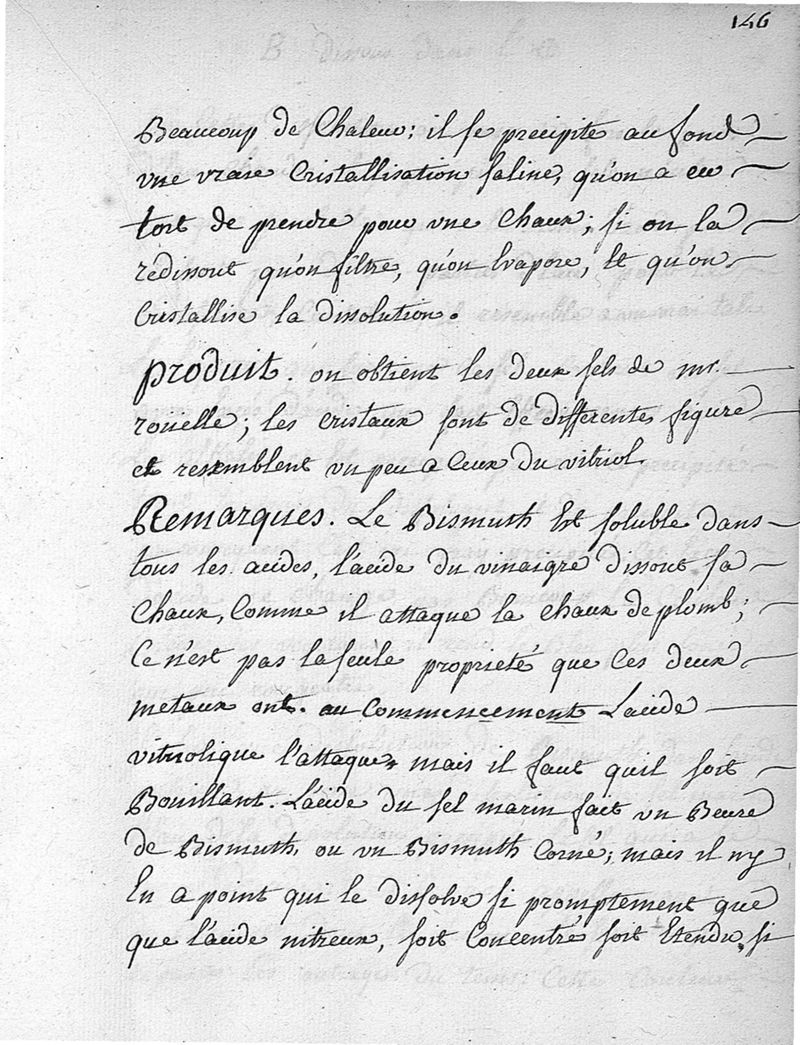 146
Beaucoup de Chaleur; il se precipite au fond
une vraie Cristallisation saline, qu'on a eu
tort de prendre pour une Chaux; si on la
redissout qu'on filtre, qu'on Evapore, et qu'on
Cristallise la dissolution.
produit. on obtient les deux sels de mr.
rouelle; les cristaux sont de differente figure
et resemblent un peu a Ceux du vitriol.
Remarques. Le Bismuth Est soluble dans
tous les acides, l'acide du vinaigre dissout sa
Chaux, Comme il attaque la chaux de plomb;
Ce n'est pas la seule proprieté que Ces deux
metaux ont. au Commencement L'acide
vitriolique l'attaque, mais il faut quil soit
Bouillant. L'acide du sel marin fait un Beure
de Bismuth, ou un Bismuth Corné; mais il ny
En a point qui le dissolve si promptement que
que l'acide nitreux, soit Concentré soit Etendu, si